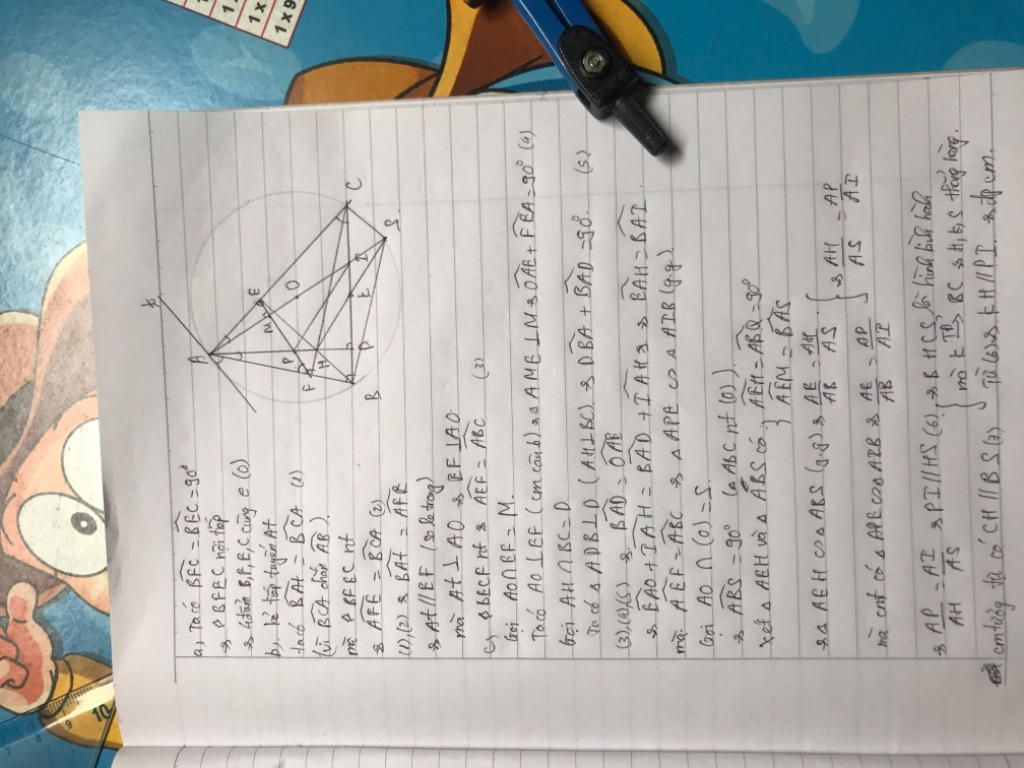 a, Ta có BFC = BEC = 90°
⇒ ◊ BFEC nội tiếp
⇒ 4 điểm B, F, E, C cùng ∈ (O)
b, kẻ tiếp tuyến At
ta có BAt = BCA (1)
(vì BCA chắn AB).
mà ◊ BFEC nt
⇒ AFE = BCA (2)
(1), (2) ⇒ BAt = AFE
⇒ At // EF (so le trong)
mà At ⊥ AO ⇒ EF ⊥ AO
c, ◊ BECF nt ⇒ AEF = ABC (3)
Gọi AO ∩ EF = M.
Ta có AO ⊥ EF (cm câu b) ⇒ △ AME ⊥ M ⇒ OAE + FEA = 90° (4)
Gọi AH ∩ BC = D
Ta có △ ADB ⊥ D (AH ⊥ BC) ⇒ DBA + BAD = 90° (5)
(3), (4), (5) ⇒ BAD = OAE
⇒ EAO + IAH = BAD + IAH ⇒ BAH = BAI
mà AEF = ABC ⇒ △ APE ∽ △ AIB (g.g)
Gọi AO ∩ (O) = S
⇒ ABS = 90° (△ ABC nt (O))
xét △ AEH và △ ABS có { AEH = ABQ = 90°
AEM = BAS
⇒ △ AEH ∽ △ ABS (g.g) ⇒ AE/AB = AH/AS
mà cmt có △ APE ∽ △ AIB ⇒ AE/AB = AP/AI
} ⇒ AH/AS = AP/AI
⇒ AP/AH = AI/AS ⇒ PI // HS (6)
cmtương tự có CH // BS (7)
⇒ BHCS là hình bình hành
mà BC ⇒ H, K, S thẳng hàng.
Từ (6) ⇒ KH // PI ⇒ đpcm.
A
t
E
M
O
P
F
H
B
D
K
I
C
S
10
9
1 x
1 x 9